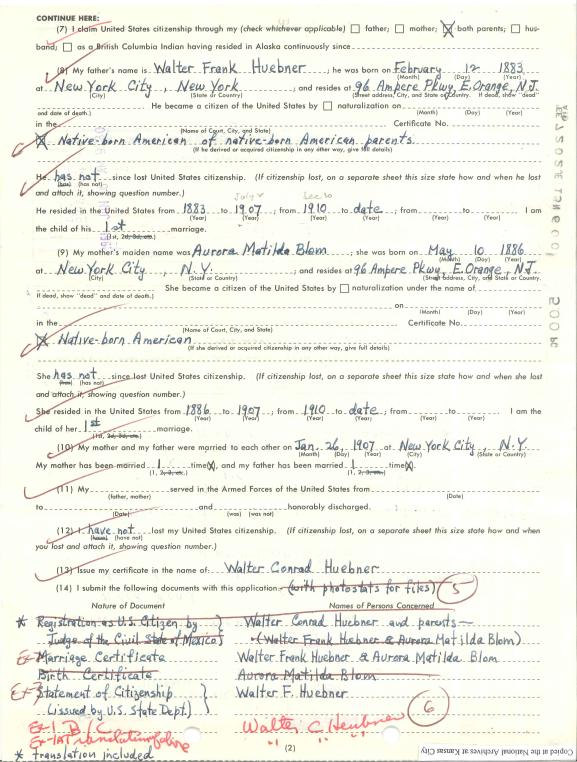 CONTINUE HERE:
(7) I claim United States citizenship through my (check whichever applicable) ☐ father; ☐ mother; ☒ both parents; ☐ hus-
band; ☐ as a British Columbia Indian having resided in Alaska continuously since
(8) My father's name is Walter Frank Huebner; he was born on February 12 1883
(Month) (Day) (Year)
at New York City, New York, and resides at 96 Ampere Pkwy, E. Orange, N.J.
(City) (State or Country) (Street address, City, and State or Country. If dead, show "dead"
and date of death.) He became a citizen of the United States by ☐ naturalization on
(Month) (Day) (Year)
in the Certificate No.
(Name of Court, City, and State)
☒ Native-born American of native-born American parents
(If he derived or acquired citizenship in any other way, give full details)
He has not since lost United States citizenship. (If citizenship lost, on a separate sheet this size state how and when he lost
(has) (has not)
and attach it, showing question number.)
July Dec 10
He resided in the United States from 1883 to 1907; from 1910 to date; from to I am
(Year) (Year) (Year) (Year) (Year) (Year)
the child of his 1st marriage.
(1st, 2d, 3d, etc.)
(9) My mother's maiden name was Aurora Matilda Blom; she was born on May 10 1886
(Month) (Day) (Year)
at New York City, N.Y., and resides at 96 Ampere Pkwy, E. Orange, N.J.
(City) (State or Country) (Street Address, City, and State or Country.
If dead, show "dead" and date of death.) She became a citizen of the United States by ☐ naturalization under the name of
on
(Month) (Day) (Year)
in the Certificate No.
(Name of Court, City, and State)
☒ Native-born American
(If she derived or acquired citizenship in any other way, give full details)
She has not since lost United States citizenship. (If citizenship lost, on a separate sheet this size state how and when she lost
(has) (has not)
and attach it, showing question number.)
She resided in the United States from 1886 to 1907; from 1910 to date; from to I am the
(Year) (Year) (Year) (Year) (Year) (Year)
child of her 1st marriage.
(1st, 2d, 3d, etc.)
(10) My mother and my father were married to each other on Jan. 26, 1907 at New York City, N.Y.
(Month) (Day) (Year) (City) (State or Country)
My mother has been married 1 time(s), and my father has been married 1 time(s).
(1, 2, 3, etc.) (1, 2, 3, etc.)
(11) My served in the Armed Forces of the United States from
(father, mother) (Date)
to and honorably discharged.
(Date) (was) (was not)
(12) I have not lost my United States citizenship. (If citizenship lost, on a separate sheet this size state how and when
(have) (have not)
you lost and attach it, showing question number.)
(13) Issue my certificate in the name of: Walter Conrad Huebner
(14) I submit the following documents with this application: (with photostats for files) 5
Nature of Document Names of Persons Concerned
* Registration as U.S. Citizen by } Walter Conrad Huebner and parents—
Judge of the Civil State of Mexico) (Walter Frank Huebner & Aurora Matilda Blom)
Marriage Certificate Walter Frank Huebner & Aurora Matilda Blom
Birth Certificate Aurora Matilda Blom
Statement of Citizenship } Walter F. Huebner
(issued by U.S. State Dept.) 6
Ex-1 B/C Walter C Heubner
Ex-1A Translation of above " " "
* translation included
(2)
Copied at the National Archives at Kansas City